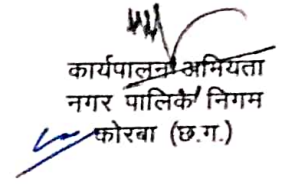 कार्यपालन अभियता
नगर पालिके निगम
कोरबा (छ.ग.)